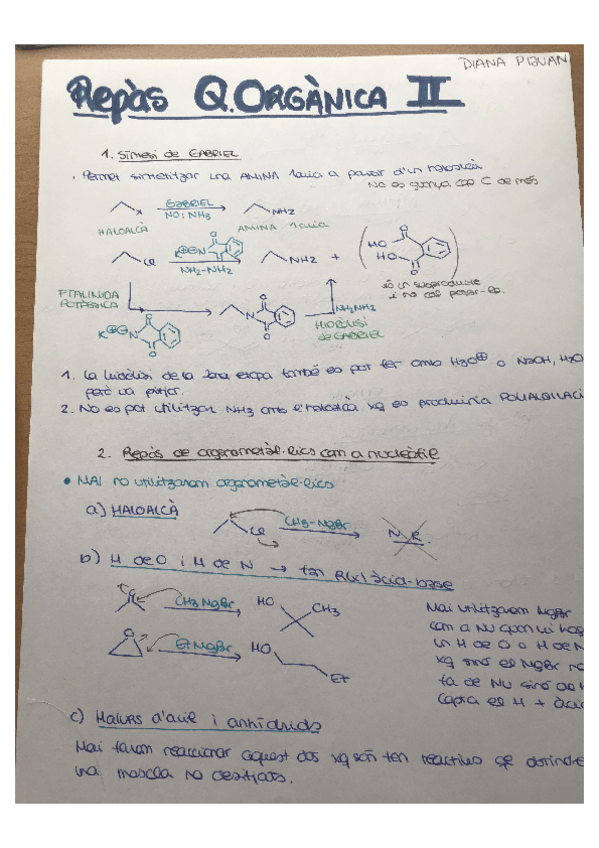 DIANA PIJUAN
Repàs Q.ORGÀNICA II
1. Síntesi de GABRIEL
· Permet sintetitzar una AMINA 1ària a partir d'un haloalcà
No es guanya cap C de més
X GABRIEL NO: NH3 NH2
HALOALCÀ AMINA 1ària
Cl K⊕ ⊖N O O NH2-NH2 NH2 + HO HO O O
és un subproducte
i no cal posar-lo.
FTALIMIDA
POTÀSSICA
K⊕ ⊖N O O
N O O
NH2NH2
HIDRÒLISI
de GABRIEL
1. La hidròlisi de la 2ona etapa també es pot fer amb H3O⊕ o NaOH, H2O
però va pitjor.
2. No es pot utilitzar NH3 amb l'haloalcà xq es produiria POLIALQUILACI
2. Repàs de organometàl·lics com a nucleòfil
• MAI no utilitzarem organometàl·lics
a) HALOALCÀ
Cl CH3-MgBr N.R.
b) H de O i H de N → fan R(x) àcid-base
O CH3MgBr HO CH3
O EtMgBr HO Et
Mai utilitzarem MgBr
com a Nu quan hi hagi
un H de O o H de N
xq sinó el MgBr no
fa de Nu sinó de
capta el H + àci
c) Halurs d'acil i anhídrids
Mai farem reaccionar aquest dos xq són tan reactius qe donindre
una mescla no desitjada.